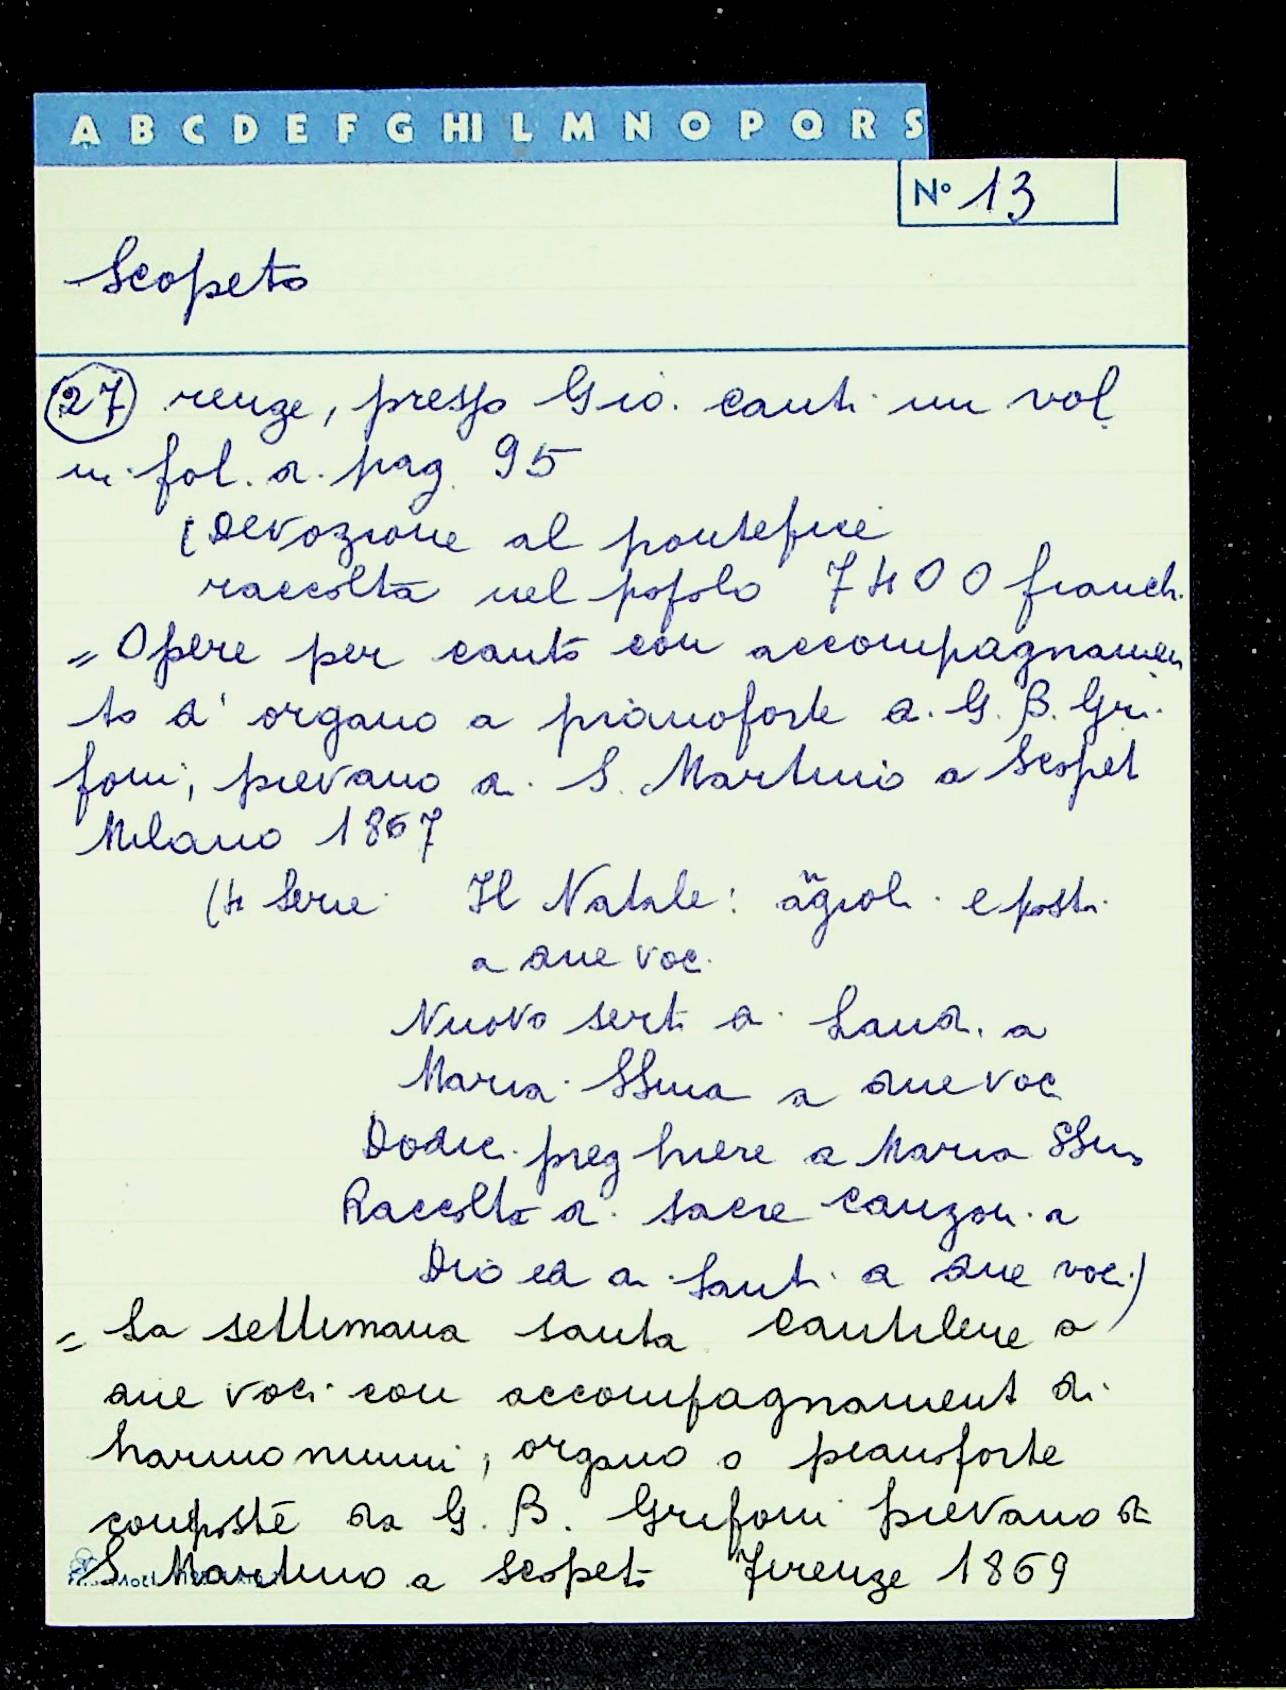 A B C D E F G HI L M N O P Q R S
N° 13
Scopeto
27 renze, presso Gio. Canti un vol
in fol. di pag. 95
(Devozione al pontefice
raccolta nel popolo 7400 franchi
= Opere per canto con accompagnamen
to d'organo a pianoforte di G. B. Gri
foni, pievano di S. Martino a Scopet
Milano 1867
(4 Serie Il Natale: e posti
a due voc.
Nuovo serti di Laudi a
Maria SSma a due voc
Dodici preghiere a Maria SSma
Raccolta di sacre canzoni a
Dio ed ai Santi a due voci)
= La settimana santa Cantilene a
due voci con accompagnament di
harmonium, organo o pianoforte
composte da G. B. Grifoni pievano di
S. Martino a Scopeto Firenze 1869